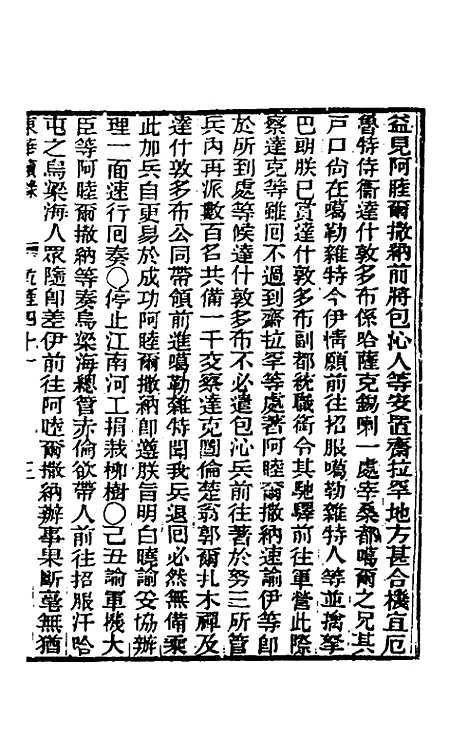 益見阿睦爾撒納前將包沁人等安置齋拉罕地方甚合機宜厄
魯特侍衞達什敦多布係哈薩克錫喇一處宰桑都噶爾之兄其
戸口尙在噶勒雜特今伊情願前往招服噶勒雜特人等並擒拏
巴朗朕已賞達什敦多布副都統職銜令其馳驛前往軍營此際
察達克等雖回不過到齋拉罕等處著阿睦爾撒納速諭伊等卽
於所到處等候達什敦多布不必遣包沁兵前往著於努三所管
兵內再派數百名共備一千交察達克圖倫楚翁郭爾扎木禪及
達什敦多布公同帶領前進噶勒雜特聞我兵退回必然無備乘
此加兵自更易於成功阿睦爾撒納卽遵朕旨明白曉諭妥協辦
理一面速行回奏○停止江南河工捐栽柳樹○己丑諭軍機大
臣等阿睦爾撒納等奏烏梁海總管赤倫欲帶人前往招服汗哈
屯之烏梁海人眾隨卽差伊前往阿睦爾撒納辦事果斷毫無猶
東華續錄 乾隆四十一 三